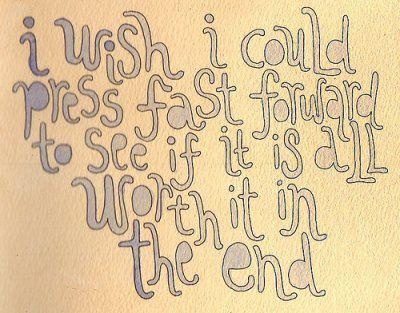 i wish i could
press fast forward
to see if it is all
worth it in
the end